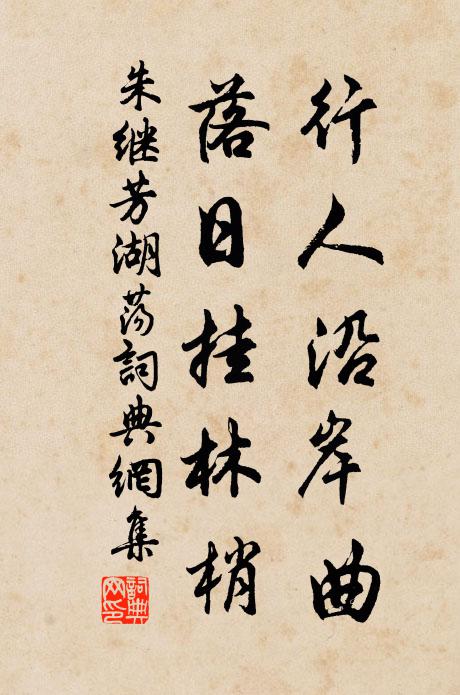 行人沿岸曲
落日挂林梢
朱继芳湖荡詞典網集
詞典网印